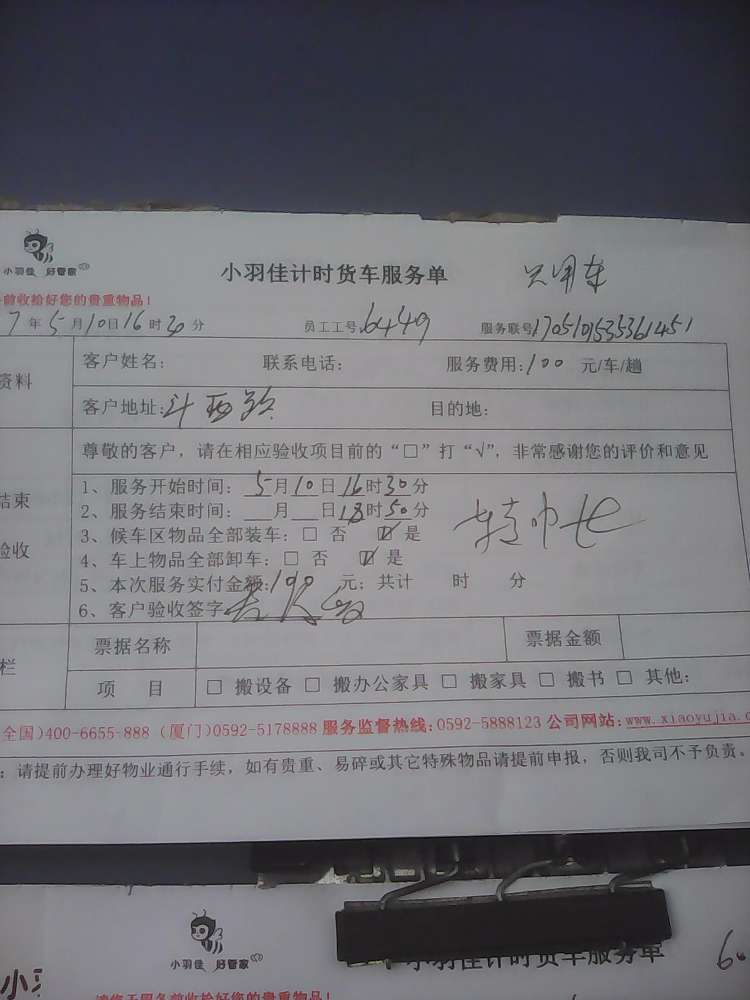 小羽佳 好管家
小羽佳计时货车服务单 只用车
前收拾好您的贵重物品！
7年5月10日16时30分 员工工号:6449 服务联号1705101535361451
资料
客户姓名: 联系电话: 服务费用:100 元/车/趟
客户地址:斗西路 目的地:
尊敬的客户，请在相应验收项目前的“□”打“√”，非常感谢您的评价和意见
结束
验收
1、服务开始时间: 5月10日16时30分
2、服务结束时间: 月 日18时50分
3、候车区物品全部装车: □ 否 ☑ 是
4、车上物品全部卸车: □ 否 ☑ 是
5、本次服务实付金额:100 元; 共计 时 分
6、客户验收签字
栏
票据名称 票据金额
项 目 □ 搬设备 □ 搬办公家具 □ 搬家具 □ 搬书 □ 其他:
全国)400-6655-888 (厦门)0592-5178888 服务监督热线:0592-5888123 公司网站:www.xiaoyujia.c
: 请提前办理好物业通行手续，如有贵重、易碎或其它特殊物品请提前申报，否则我司不予负责。
小羽佳 好管家
小羽佳计时货车服务单
请您于服务前收拾好您的贵重物品!